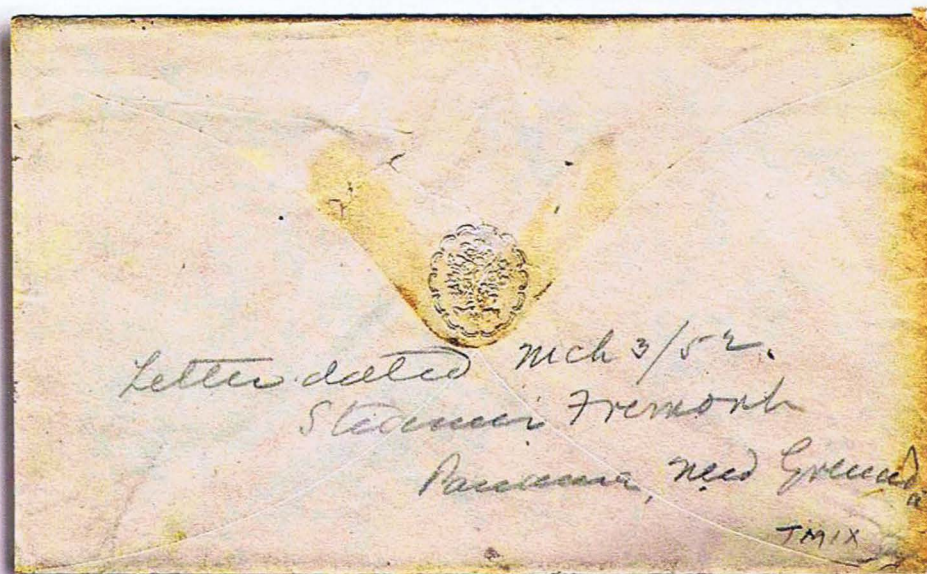 Letter dated Mch 3/52.
Steamer Fremont
Panama, New Grenada
TMIX